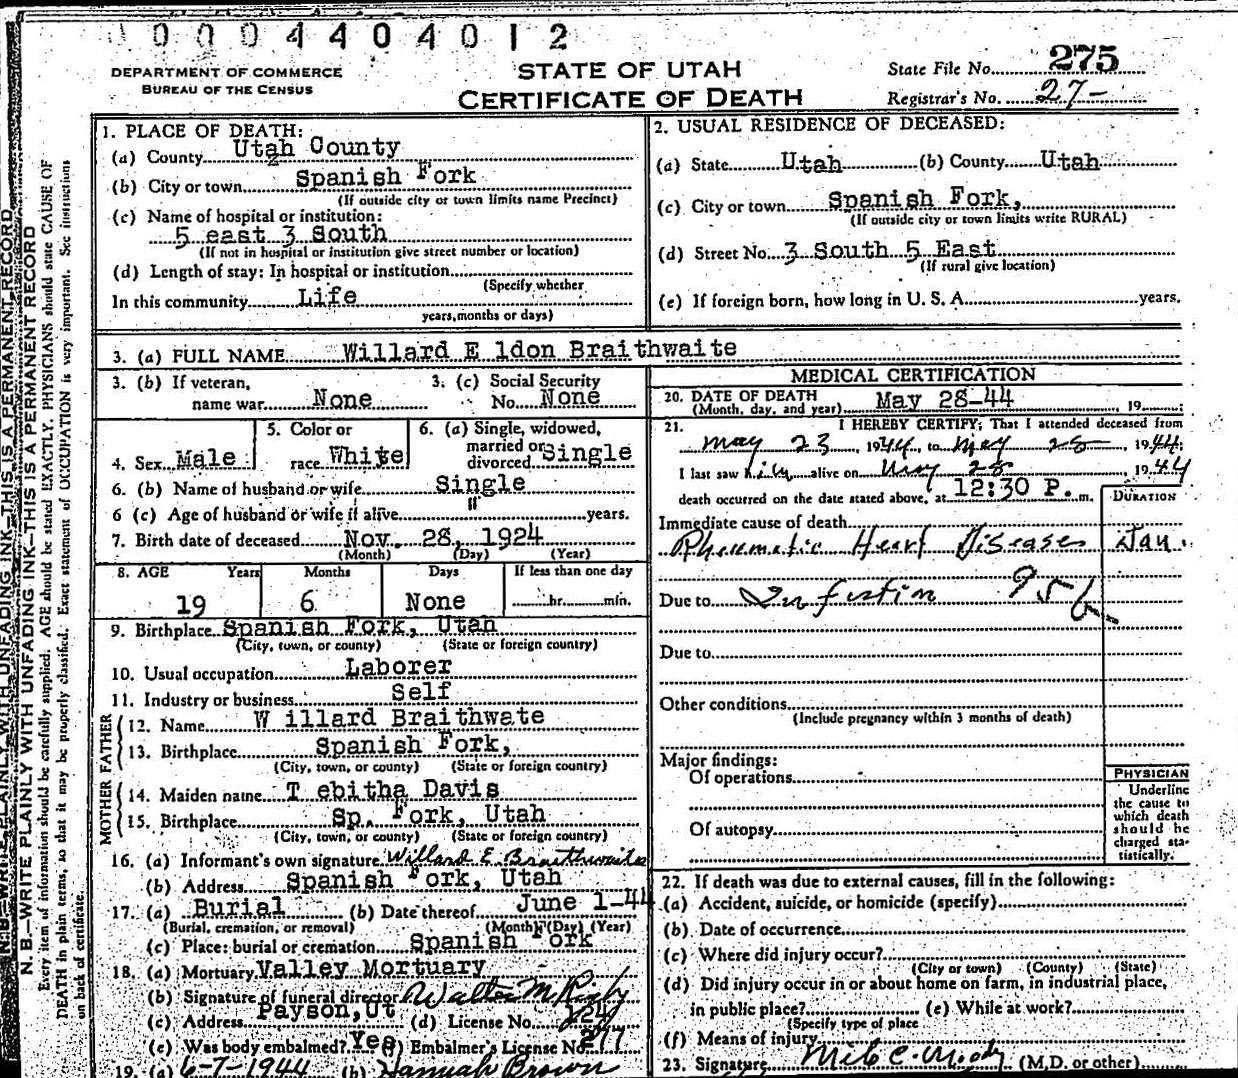 0004404012
DEPARTMENT OF COMMERCE
BUREAU OF THE CENSUS
STATE OF UTAH
CERTIFICATE OF DEATH
State File No. 275
Registrar's No. 27-
1. PLACE OF DEATH:
(a) County Utah County
(b) City or town Spanish Fork
(If outside city or town limits name Precinct)
(c) Name of hospital or institution:
5 east 3 South
(If not in hospital or institution give street number or location)
(d) Length of stay: In hospital or institution
(Specify whether
In this community Life
years, months or days)
2. USUAL RESIDENCE OF DECEASED:
(a) State Utah (b) County Utah
(c) City or town Spanish Fork,
(If outside city or town limits write RURAL)
(d) Street No. 3 South 5 East
(If rural give location)
(e) If foreign born, how long in U. S. A. years.
3. (a) FULL NAME Willard E ldon Braithwaite
3. (b) If veteran, 3. (c) Social Security
name war None No. None
4. Sex Male 5. Color or race White 6. (a) Single, widowed, married or divorced Single
6. (b) Name of husband or wife Single
6 (c) Age of husband or wife if alive " years.
7. Birth date of deceased Nov. 28, 1924
(Month) (Day) (Year)
8. AGE Years Months Days If less than one day
19 6 None hr. min.
9. Birthplace Spanish Fork, Utah
(City, town, or county) (State or foreign country)
10. Usual occupation Laborer
11. Industry or business Self
FATHER
12. Name W illard Braithwate
13. Birthplace Spanish Fork,
(City, town, or county) (State or foreign country)
MOTHER
14. Maiden name T ebitha Davis
15. Birthplace Sp. Fork, Utah
(City, town, or county) (State or foreign country)
16. (a) Informant's own signature Willard E. Braithwaite
(b) Address Spanish Fork, Utah
17. (a) Burial (b) Date thereof June 1-44
(Burial, cremation, or removal) (Month) (Day) (Year)
(c) Place: burial or cremation Spanish Fork
18. (a) Mortuary Valley Mortuary
(b) Signature of funeral director Walter M Rigby
(c) Address Payson, Ut (d) License No. 224
(e) Was body embalmed? Yes (f) Embalmer's License No. 277
19. (a) 6-7-1944 (b) Hannah Brown
MEDICAL CERTIFICATION
20. DATE OF DEATH
(Month, day, and year) May 28-44, 19
21. I HEREBY CERTIFY, That I attended deceased from
May 23, 1944, to May 28 1944;
I last saw him alive on May 28 1944
death occurred on the date stated above, at 12:30 P. m.
DURATION
Immediate cause of death
Rheumatic Heart Diseases Jan.
Due to Infection 95b
Due to
Other conditions
(Include pregnancy within 3 months of death)
Major findings:
Of operations
Of autopsy
PHYSICIAN
Underline
the cause to
which death
should be
charged sta-
tistically.
22. If death was due to external causes, fill in the following:
(a) Accident, suicide, or homicide (specify)
(b) Date of occurrence
(c) Where did injury occur?
(City or town) (County) (State)
(d) Did injury occur in or about home on farm, in industrial place,
in public place? (e) While at work?
(Specify type of place
(f) Means of injury
23. Signature Milo C. Moody (M.D. or other)
N. B.—WRITE PLAINLY WITH UNFADING INK—THIS IS A PERMANENT RECORD
N. B.—WRITE PLAINLY WITH UNFADING INK—THIS IS A PERMANENT RECORD
Every item of information should be carefully supplied. AGE should be stated EXACTLY. PHYSICIANS should state CAUSE OF
DEATH in plain terms, so that it may be properly classified. Exact statement of OCCUPATION is very important. See instructions
on back of certificate.